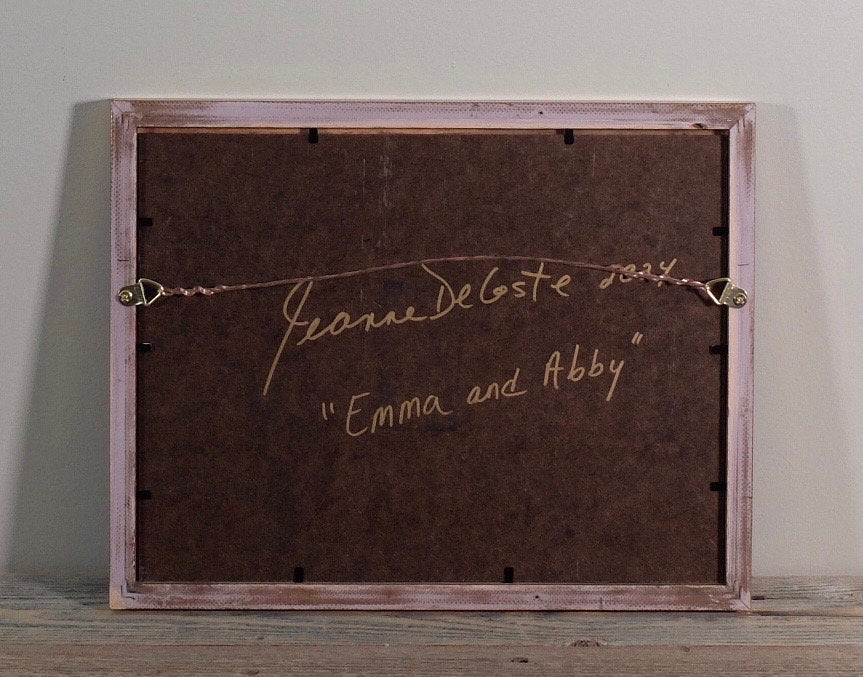 Jeanne DeCoste 2024
"Emma and Abby"